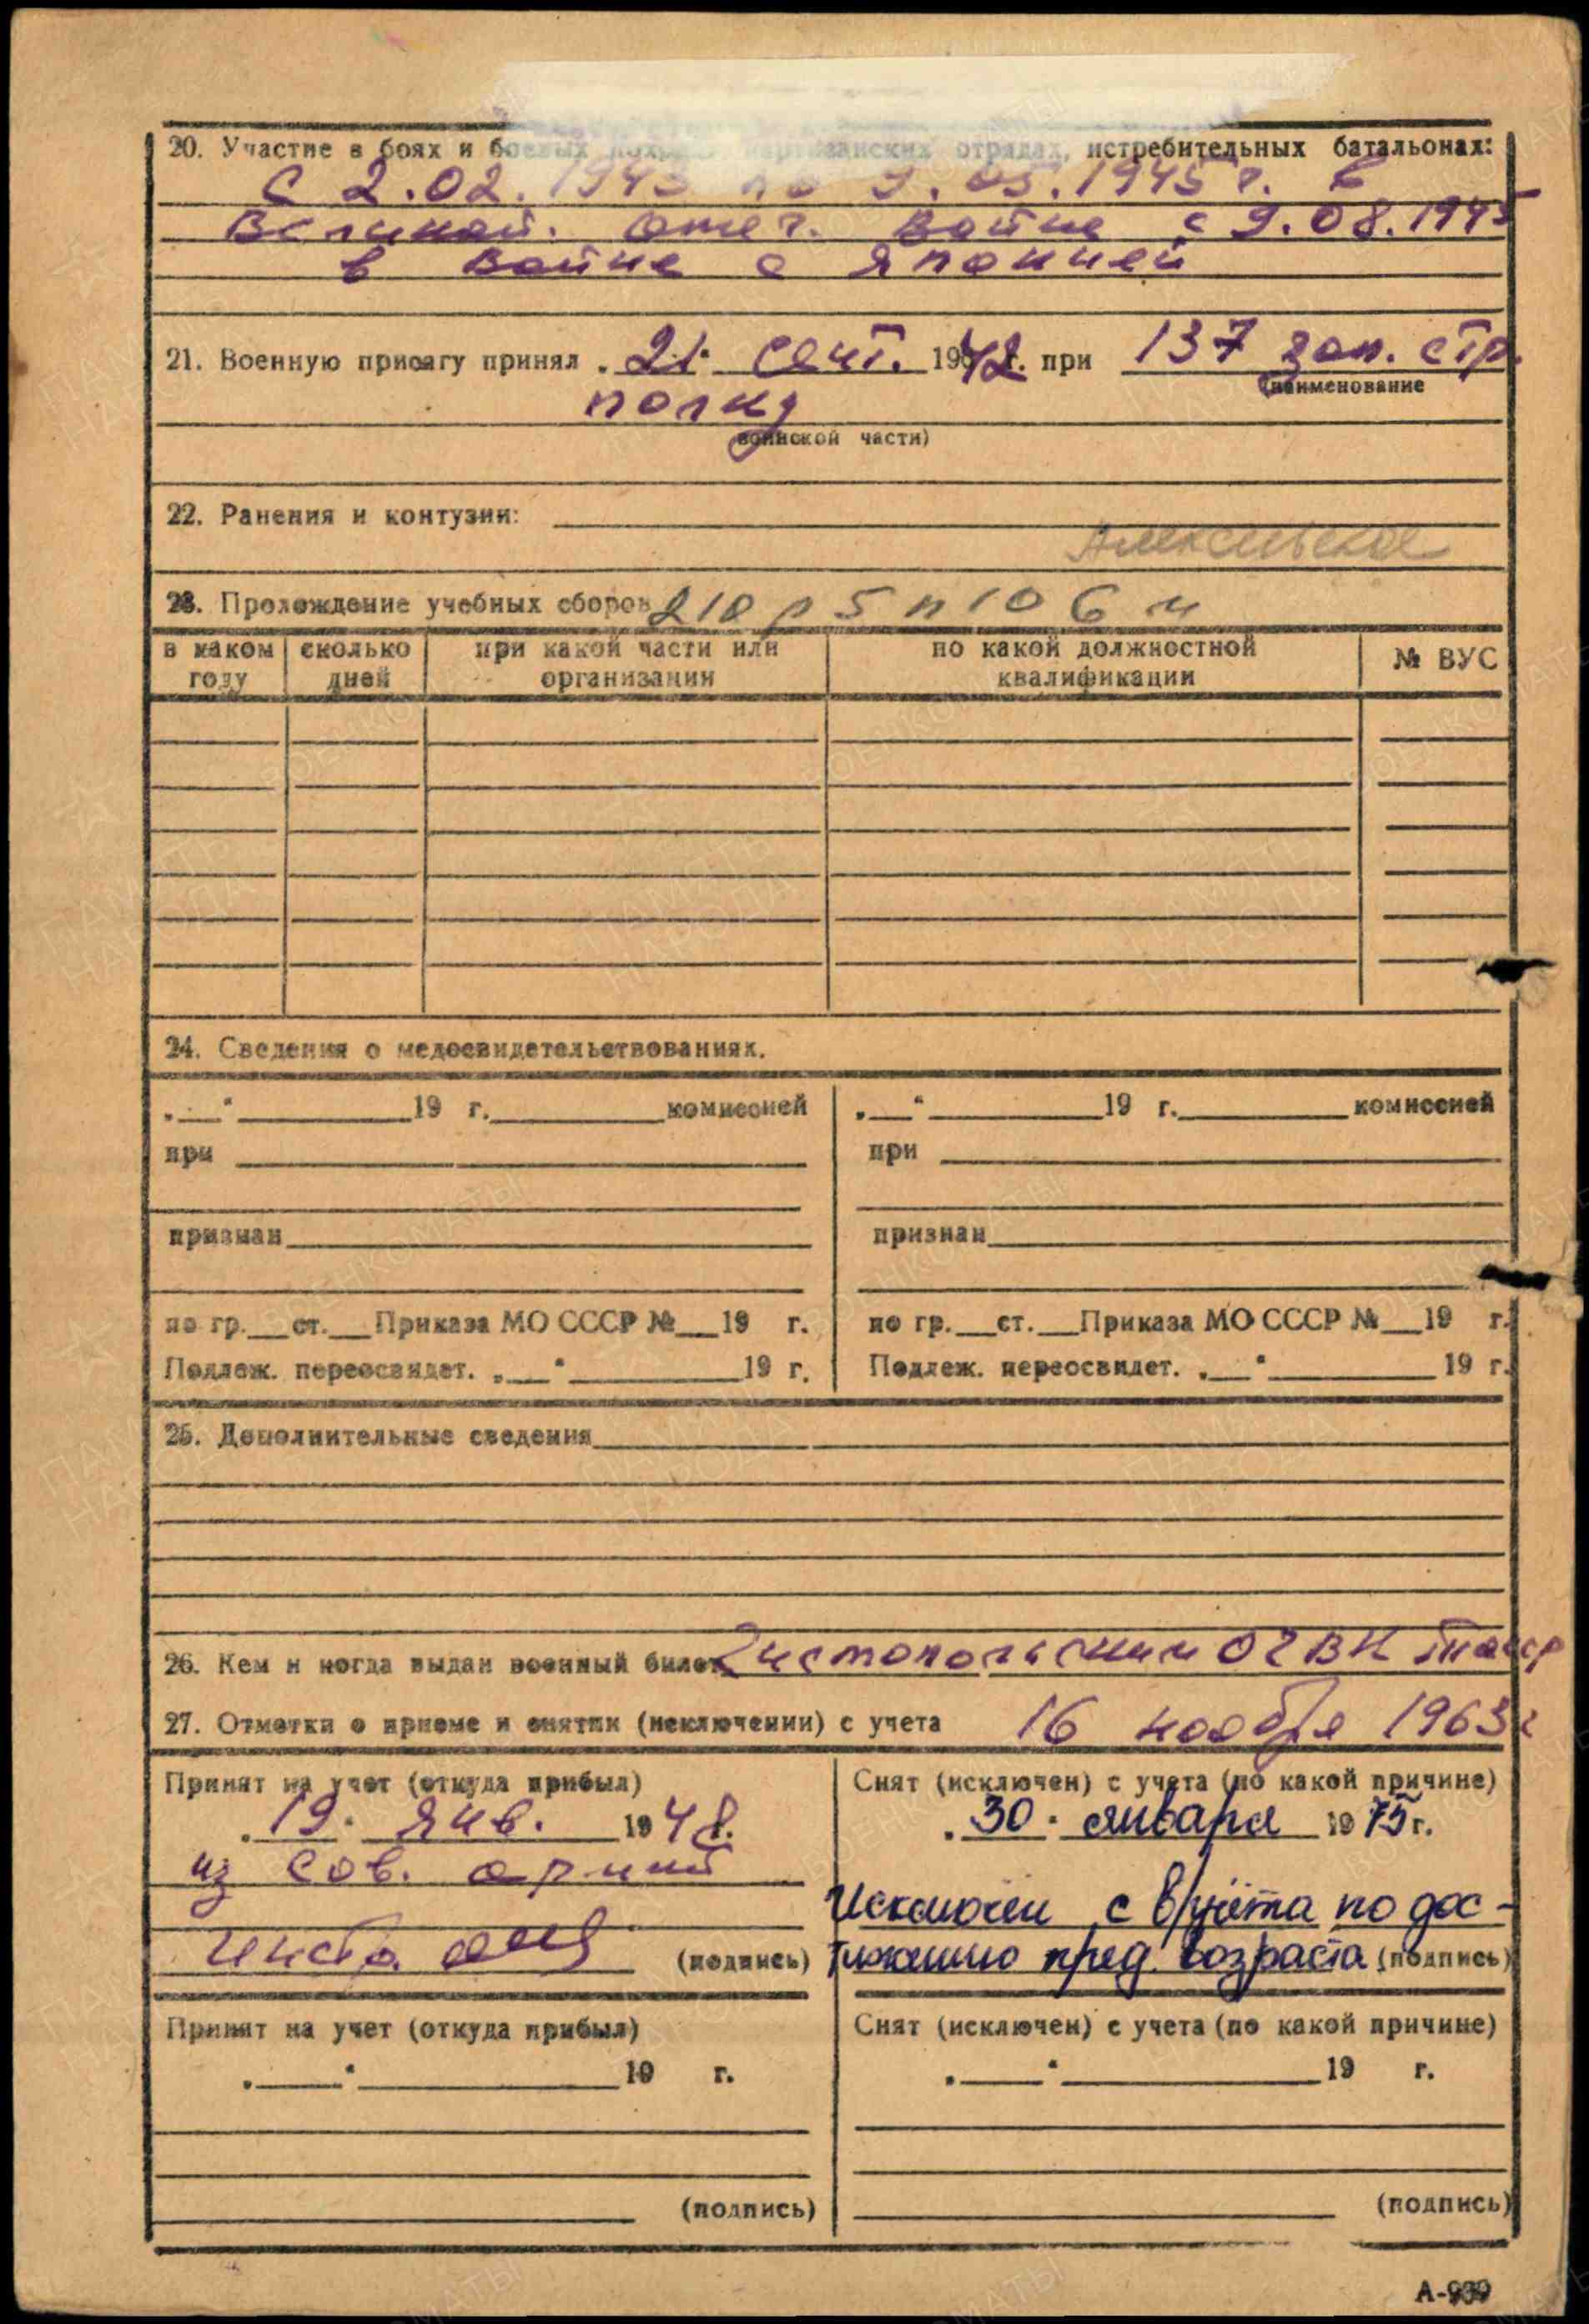 20. Участие в боях и боевых походах, партизанских отрядах, истребительных батальонах:
с 2.02.1943 по 9.05.1945 г. в
Великой. отеч. войне с 9.08.1945
в войне с Японией
21. Военную присягу принял „21" сент. 1942 г. при 137 зап. стр.
(наименование
полку
воинской части)
22. Ранения и контузии:
23. Прохождение учебных сборов 210 р 5 п 10 6 м
в каком году | сколько дней | при какой части или организации | по какой должностной квалификации | № ВУС
24. Сведения о медосвидетельствованиях.
„ " 19 г. комиссией „ " 19 г. комиссией
при при
признан признан
по гр. ст. Приказа МО СССР № 19 г. по гр. ст. Приказа МО СССР № 19 г.
Подлеж. переосвидет. „ " 19 г. Подлеж. переосвидет. „ " 19 г.
25. Дополнительные сведения
26. Кем и когда выдан военный билет Чистопольским ОГВК ТАССР
27. Отметки о приеме и снятии (исключении) с учета 16 ноября 1963 г
Принят на учет (откуда прибыл) Снят (исключен) с учета (по какой причине)
„19" янв. 1948. „30" января 1975 г.
из сов. армии
Исключен с в/учёта по дос-
(подпись) тижению пред. возраста (подпись)
Принят на учет (откуда прибыл) Снят (исключен) с учета (по какой причине)
„ " 19 г. „ " 19 г.
(подпись) (подпись)
А-939